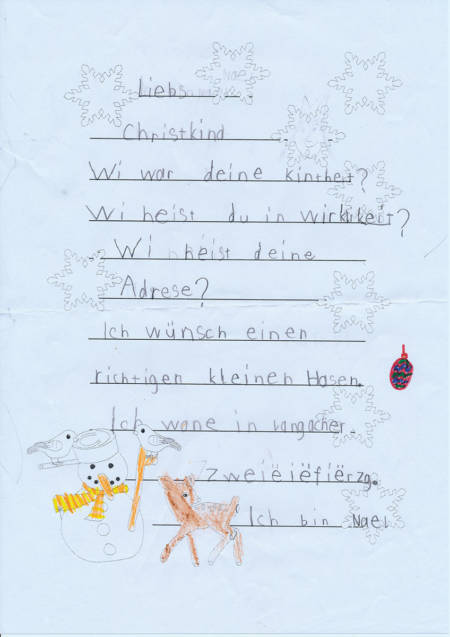 Liebs
Christkind
Wi war deine kintheit?
Wi heist du in wirklikeit?
Wi heist deine
Adrese?
Ich wünsch einen
richtigen kleinen Hasen.
Ich wone in langacher.
zweiëiëfiërzg.
Ich bin Nael